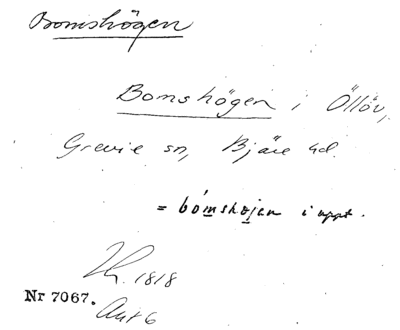 Bomshögen
Bomshögen i Öllöv,
Grevie sn, Bjäre hd.
= bómshojen i uppt.
1818
Nr 7067.